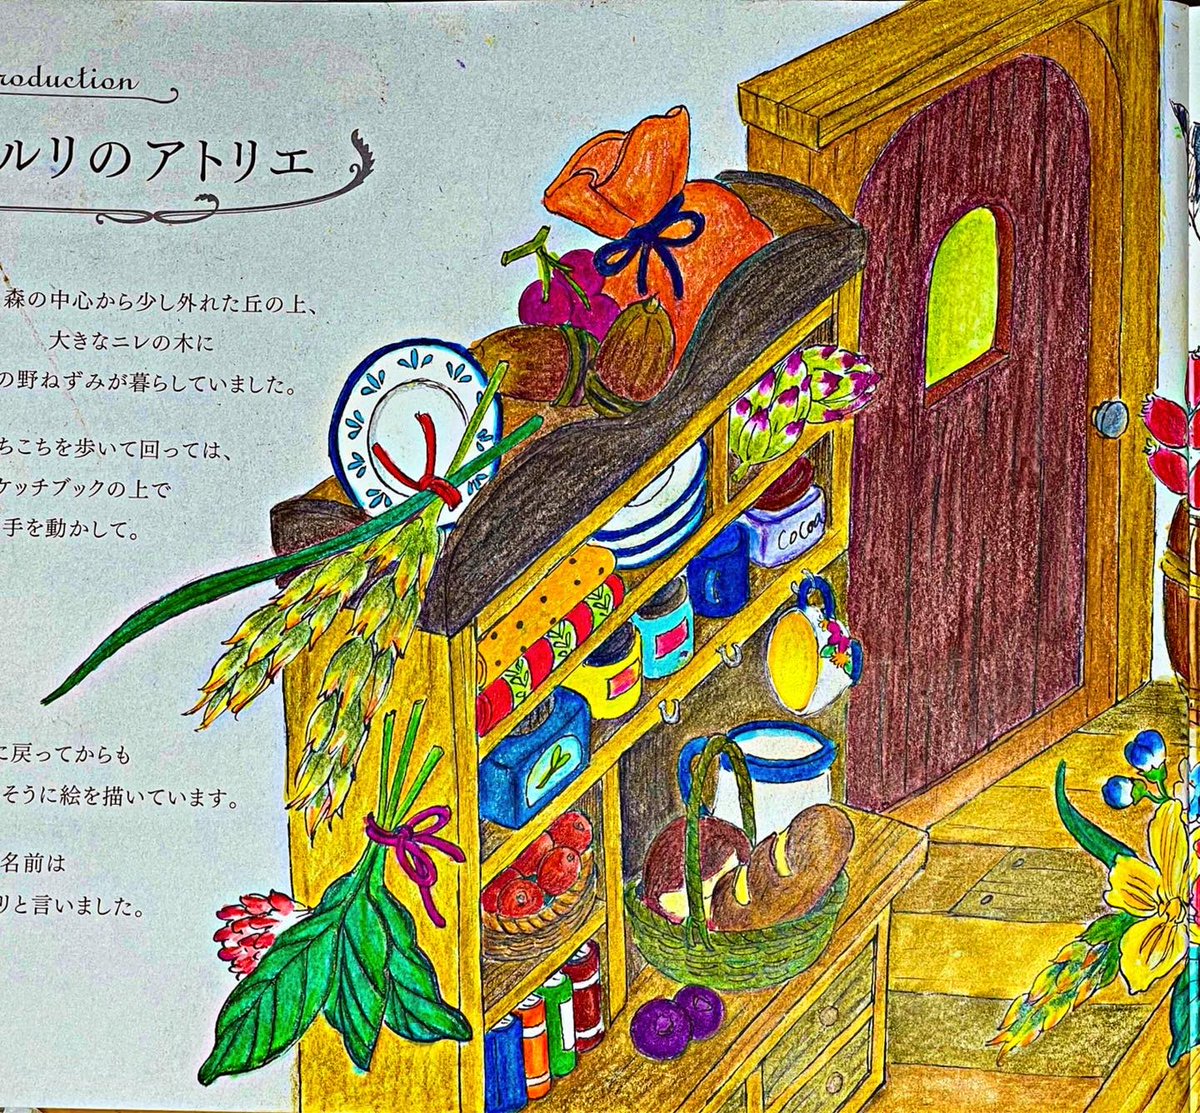 roduction
ルリのアトリエ
森の中心から少し外れた丘の上、
大きなニレの木に
の野ねずみが暮らしていました。
ちこちを歩いて回っては、
ケッチブックの上で
手を動かして。
に戻ってからも
そうに絵を描いています。
名前は
リと言いました。
Cocoa